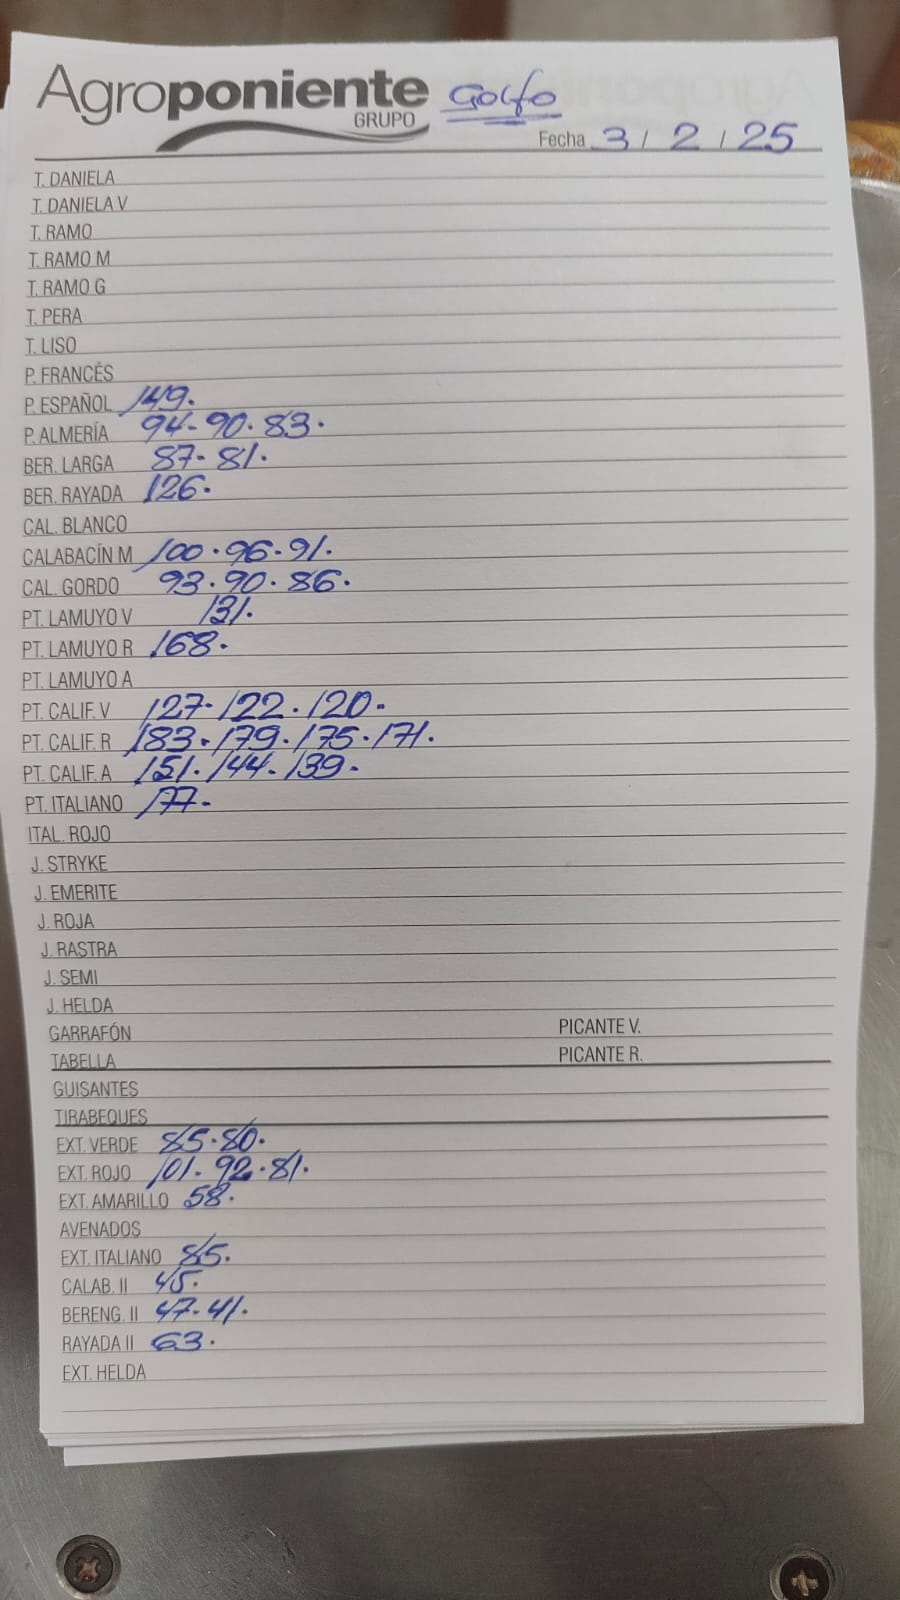 Agroponiente Golfo
GRUPO
Fecha 3 / 2 / 25
T. DANIELA
T. DANIELA V
T. RAMO
T. RAMO M
T. RAMO G
T. PERA
T. LISO
P. FRANCÉS
P. ESPAÑOL 149.
P. ALMERÍA 94- 90. 83.
BER. LARGA 87- 81.
BER. RAYADA 126.
CAL. BLANCO
CALABACÍN M 100. 96. 91.
CAL. GORDO 93. 90. 86.
PT. LAMUYO V 131.
PT. LAMUYO R 168.
PT. LAMUYO A
PT. CALIF. V 127- 122. 120.
PT. CALIF. R 183. 179. 175. 171.
PT. CALIF. A 151. 144. 139.
PT. ITALIANO 177.
ITAL. ROJO
J. STRYKE
J. EMERITE
J. ROJA
J. RASTRA
J. SEMI
J. HELDA
GARRAFÓN PICANTE V.
TABELLA PICANTE R.
GUISANTES
TIRABEQUES
EXT. VERDE 85. 80.
EXT. ROJO 101. 92. 81.
EXT. AMARILLO 58.
AVENADOS
EXT. ITALIANO 85.
CALAB. II 45.
BERENG. II 47- 41.
RAYADA II 63.
EXT. HELDA